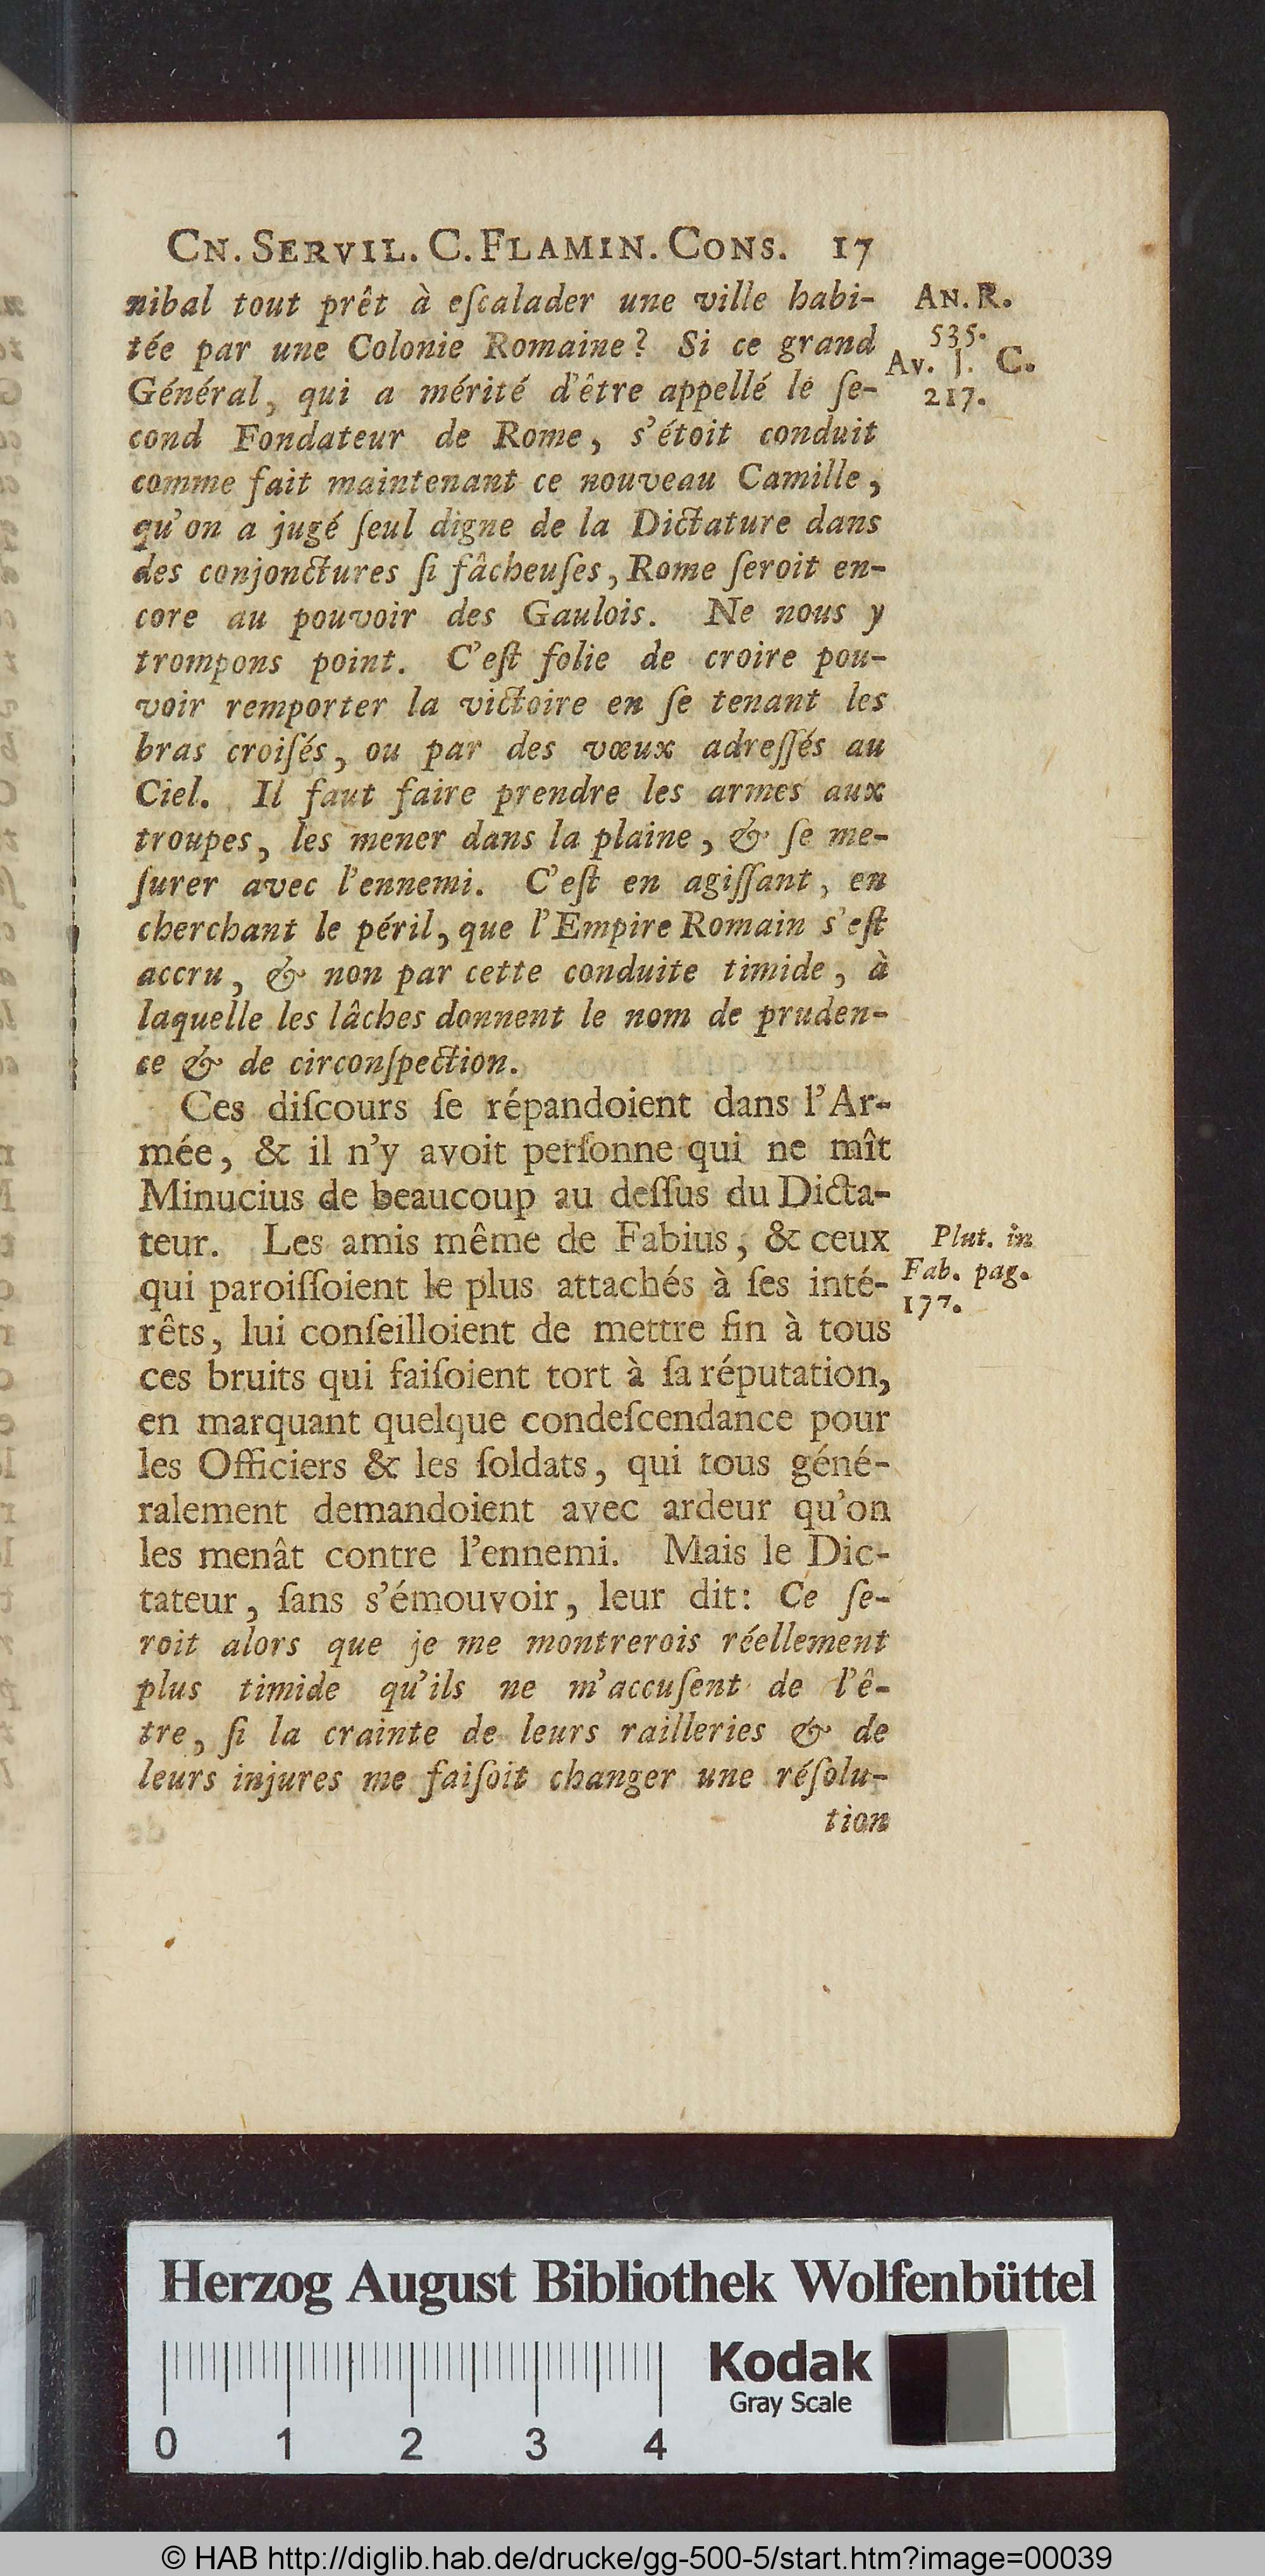 CN. SERVIL. C. FLAMIN. CONS. 17
nibal tout prêt à eſcalader une ville habi-
tée par une Colonie Romaine? Si ce grand
Général, qui a mérité d'être appellé le ſe-
cond Fondateur de Rome, s'étoit conduit
comme fait maintenant ce nouveau Camille,
qu'on a jugé ſeul digne de la Dictature dans
des conjonctures ſi fâcheuſes, Rome ſeroit en-
core au pouvoir des Gaulois. Ne nous y
trompons point. C'eſt folie de croire pou-
voir remporter la victoire en ſe tenant les
bras croiſés, ou par des vœux adreſſés au
Ciel. Il faut faire prendre les armes aux
troupes, les mener dans la plaine, & ſe me-
ſurer avec l'ennemi. C'eſt en agiſſant, en
cherchant le péril, que l'Empire Romain s'eſt
accru, & non par cette conduite timide, à
laquelle les lâches donnent le nom de pruden-
ce & de circonſpection.
Ces diſcours ſe répandoient dans l'Ar-
mée, & il n'y avoit perſonne qui ne mît
Minucius de beaucoup au deſſus du Dicta-
teur. Les amis même de Fabius, & ceux
qui paroiſſoient le plus attachés à ſes inté-
rêts, lui conſeilloient de mettre fin à tous
ces bruits qui faiſoient tort à ſa réputation,
en marquant quelque condeſcendance pour
les Officiers & les ſoldats, qui tous géné-
ralement demandoient avec ardeur qu'on
les menât contre l'ennemi. Mais le Dic-
tateur, ſans s'émouvoir, leur dit: Ce ſe-
roit alors que je me montrerois réellement
plus timide qu'ils ne m'accuſent de l'ê-
tre, ſi la crainte de leurs railleries & de
leurs injures me faiſoit changer une réſolu-
tion
AN. R.
535.
Av. J. C.
217.
Plut. in
Fab. pag.
177.
Herzog August Bibliothek Wolfenbüttel
Kodak
Gray Scale
0 1 2 3 4
© HAB http://diglib.hab.de/drucke/gg-500-5/start.htm?image=00039